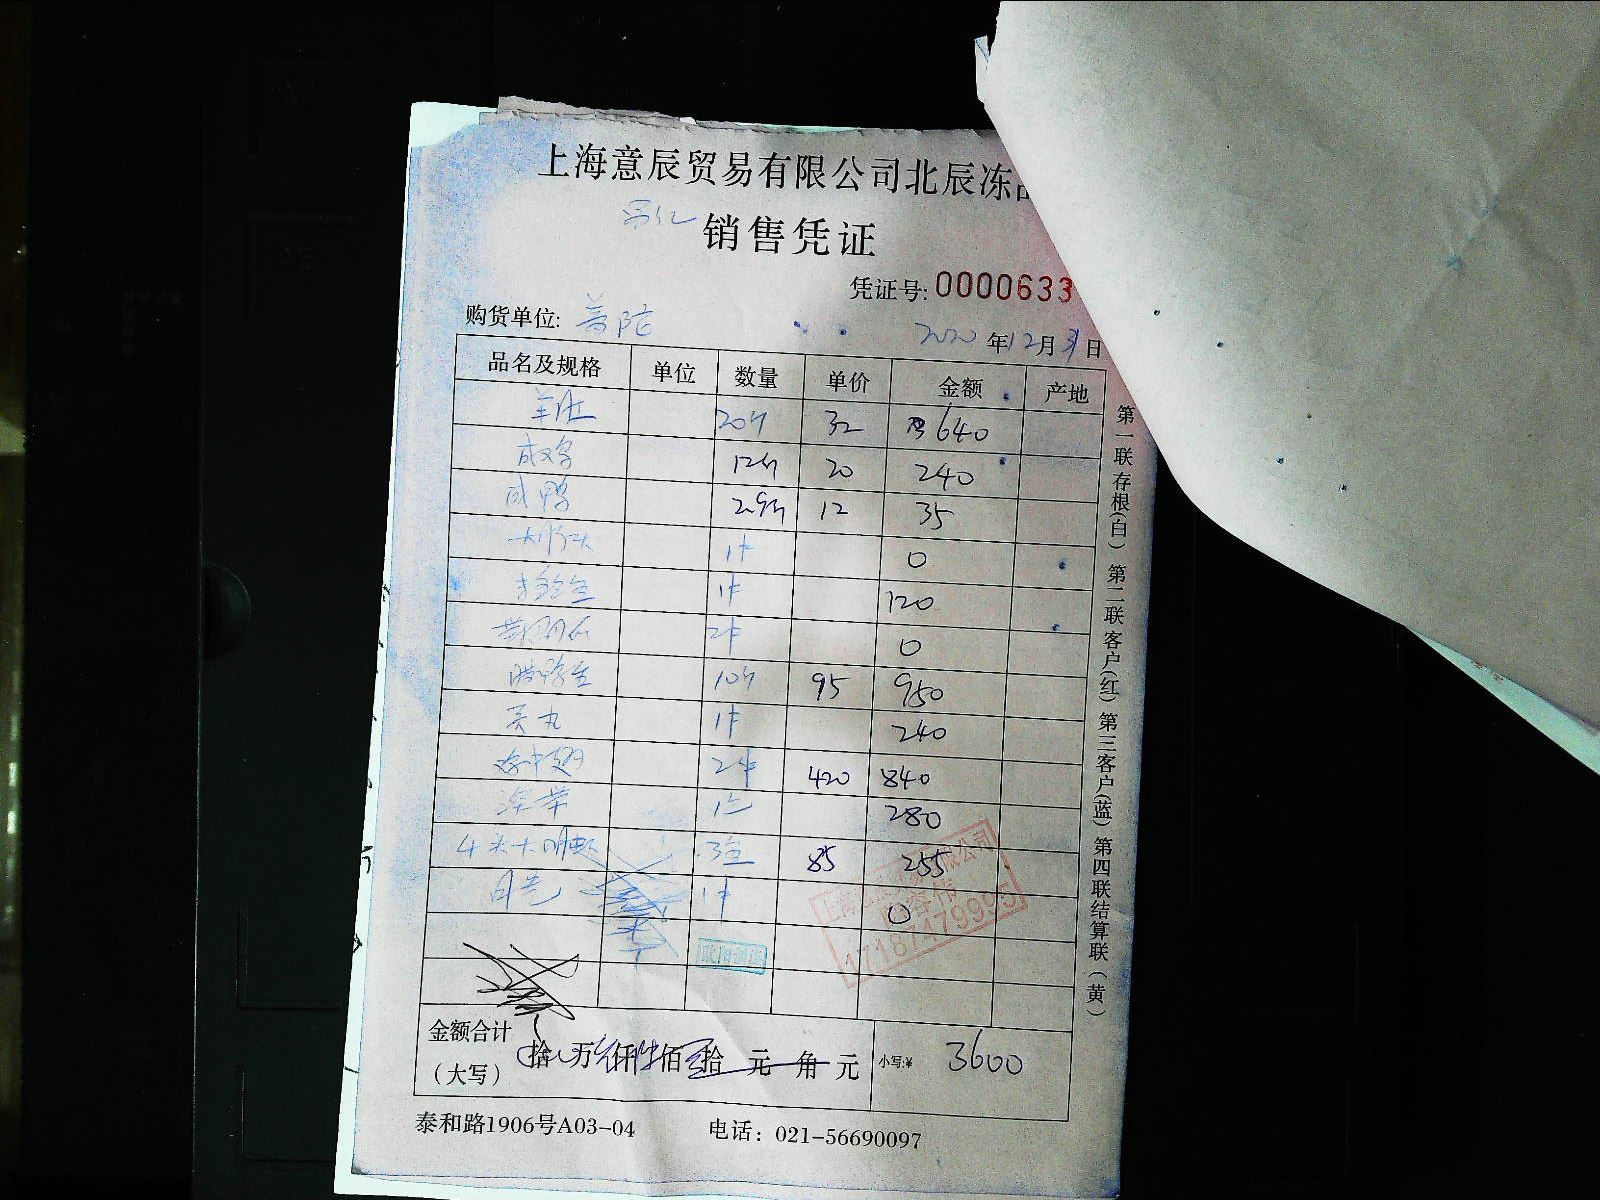 上海意辰贸易有限公司北辰冻品
销售凭证
凭证号: 0000633
购货单位: 普陀
2020年12月31日
品名及规格 单位 数量 单价 金额 产地
羊肚 20斤 32 640
成鸡 12斤 20 240
咸鸭 2.9斤 12 35
1件 0
1件 120
2件 0
10斤 95 950
贡丸 1件 240
鸡中翅 2件 420 840
280
4头大明虾 3盒 85 255
1件 0
金额合计
(大写) 拾 万 仟 佰 拾 元 角 元 小写:¥ 3600
泰和路1906号A03-04 电话: 021-56690097
第一联存根(白) 第二联客户(红) 第三客户(蓝) 第四联结算联(黄)
17187479995